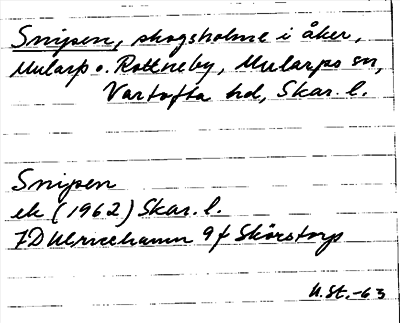 Snipen, skogsholme i åker,
Mularp o. Rottneby, Mularps sn,
Vartofta hd, Skar. l.
Snipen
ek (1962) Skar. l.
7D Ulricehamn 9f Skörstorp
U.St.-63